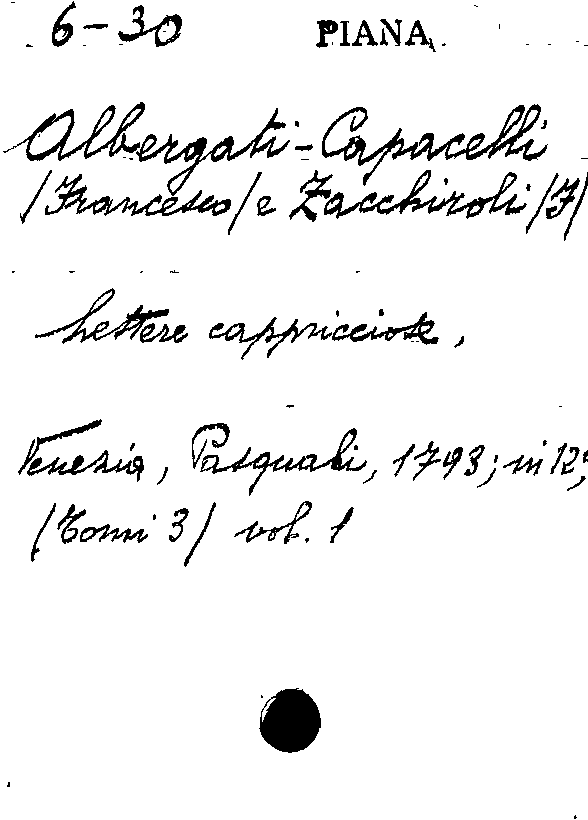 6-30 PIANA
Albergati-Capacelli
/Francesco/ e Zacchiroli /F/
Lettere cappricciose,
Venezia, Pasquali, 1793; in 12°,
/Tomi 3/ vol. 1